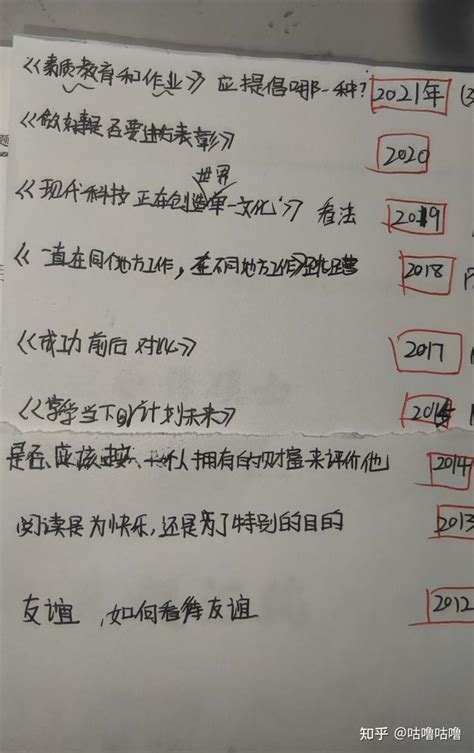 《素质教育和作业》应提倡哪一种? 2021年
《做好事是否要进行表彰》 2020
世界
《现代科技正在创造单一文化》看法 2019
《一直在同个地方工作,在不同地方工作》 2018
《成功前后对比》 2017
《享受当下or计划未来》 201
是否应该按一个人拥有的财富来评价他 2014
阅读是为快乐,还是为了特别的目的 2013
友谊,如何看待友谊 2012
知乎 @咕噜咕噜